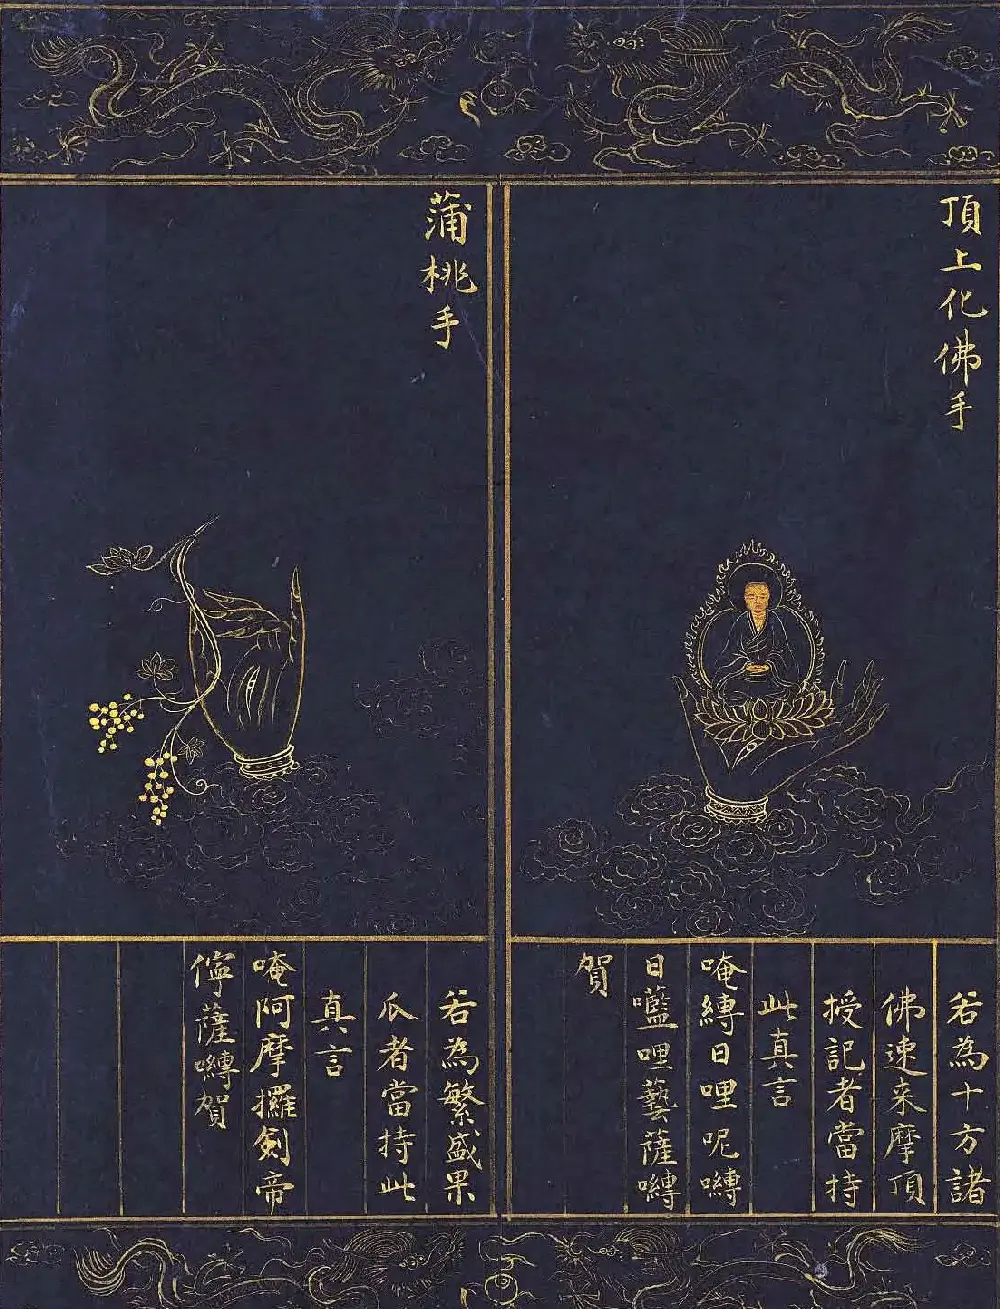 頂上化佛手
若為十方諸
佛速来摩頂
授記者當持
此真言
唵縛日哩呢嚩
日囕哩藝薩嚩
賀
蒲桃手
若為繁盛果
瓜者當持此
真言
唵阿摩攞劍帝
儜薩嚩賀